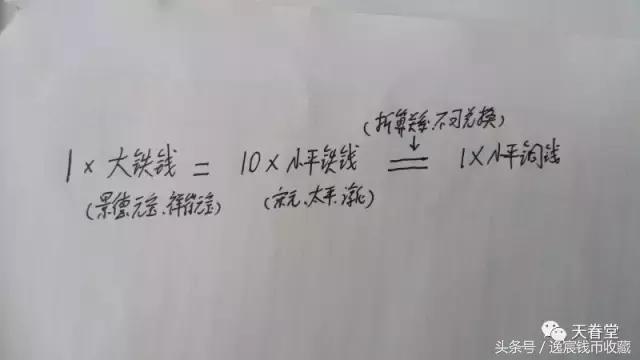 (折算关系、不可兑换)
1 × 大铁钱 = 10 × 小平铁钱 = 1 × 小平铜钱
(景德元宝、祥符元宝) (宋元、太平、淳化)
天眷堂
头条号／逸宸钱币收藏